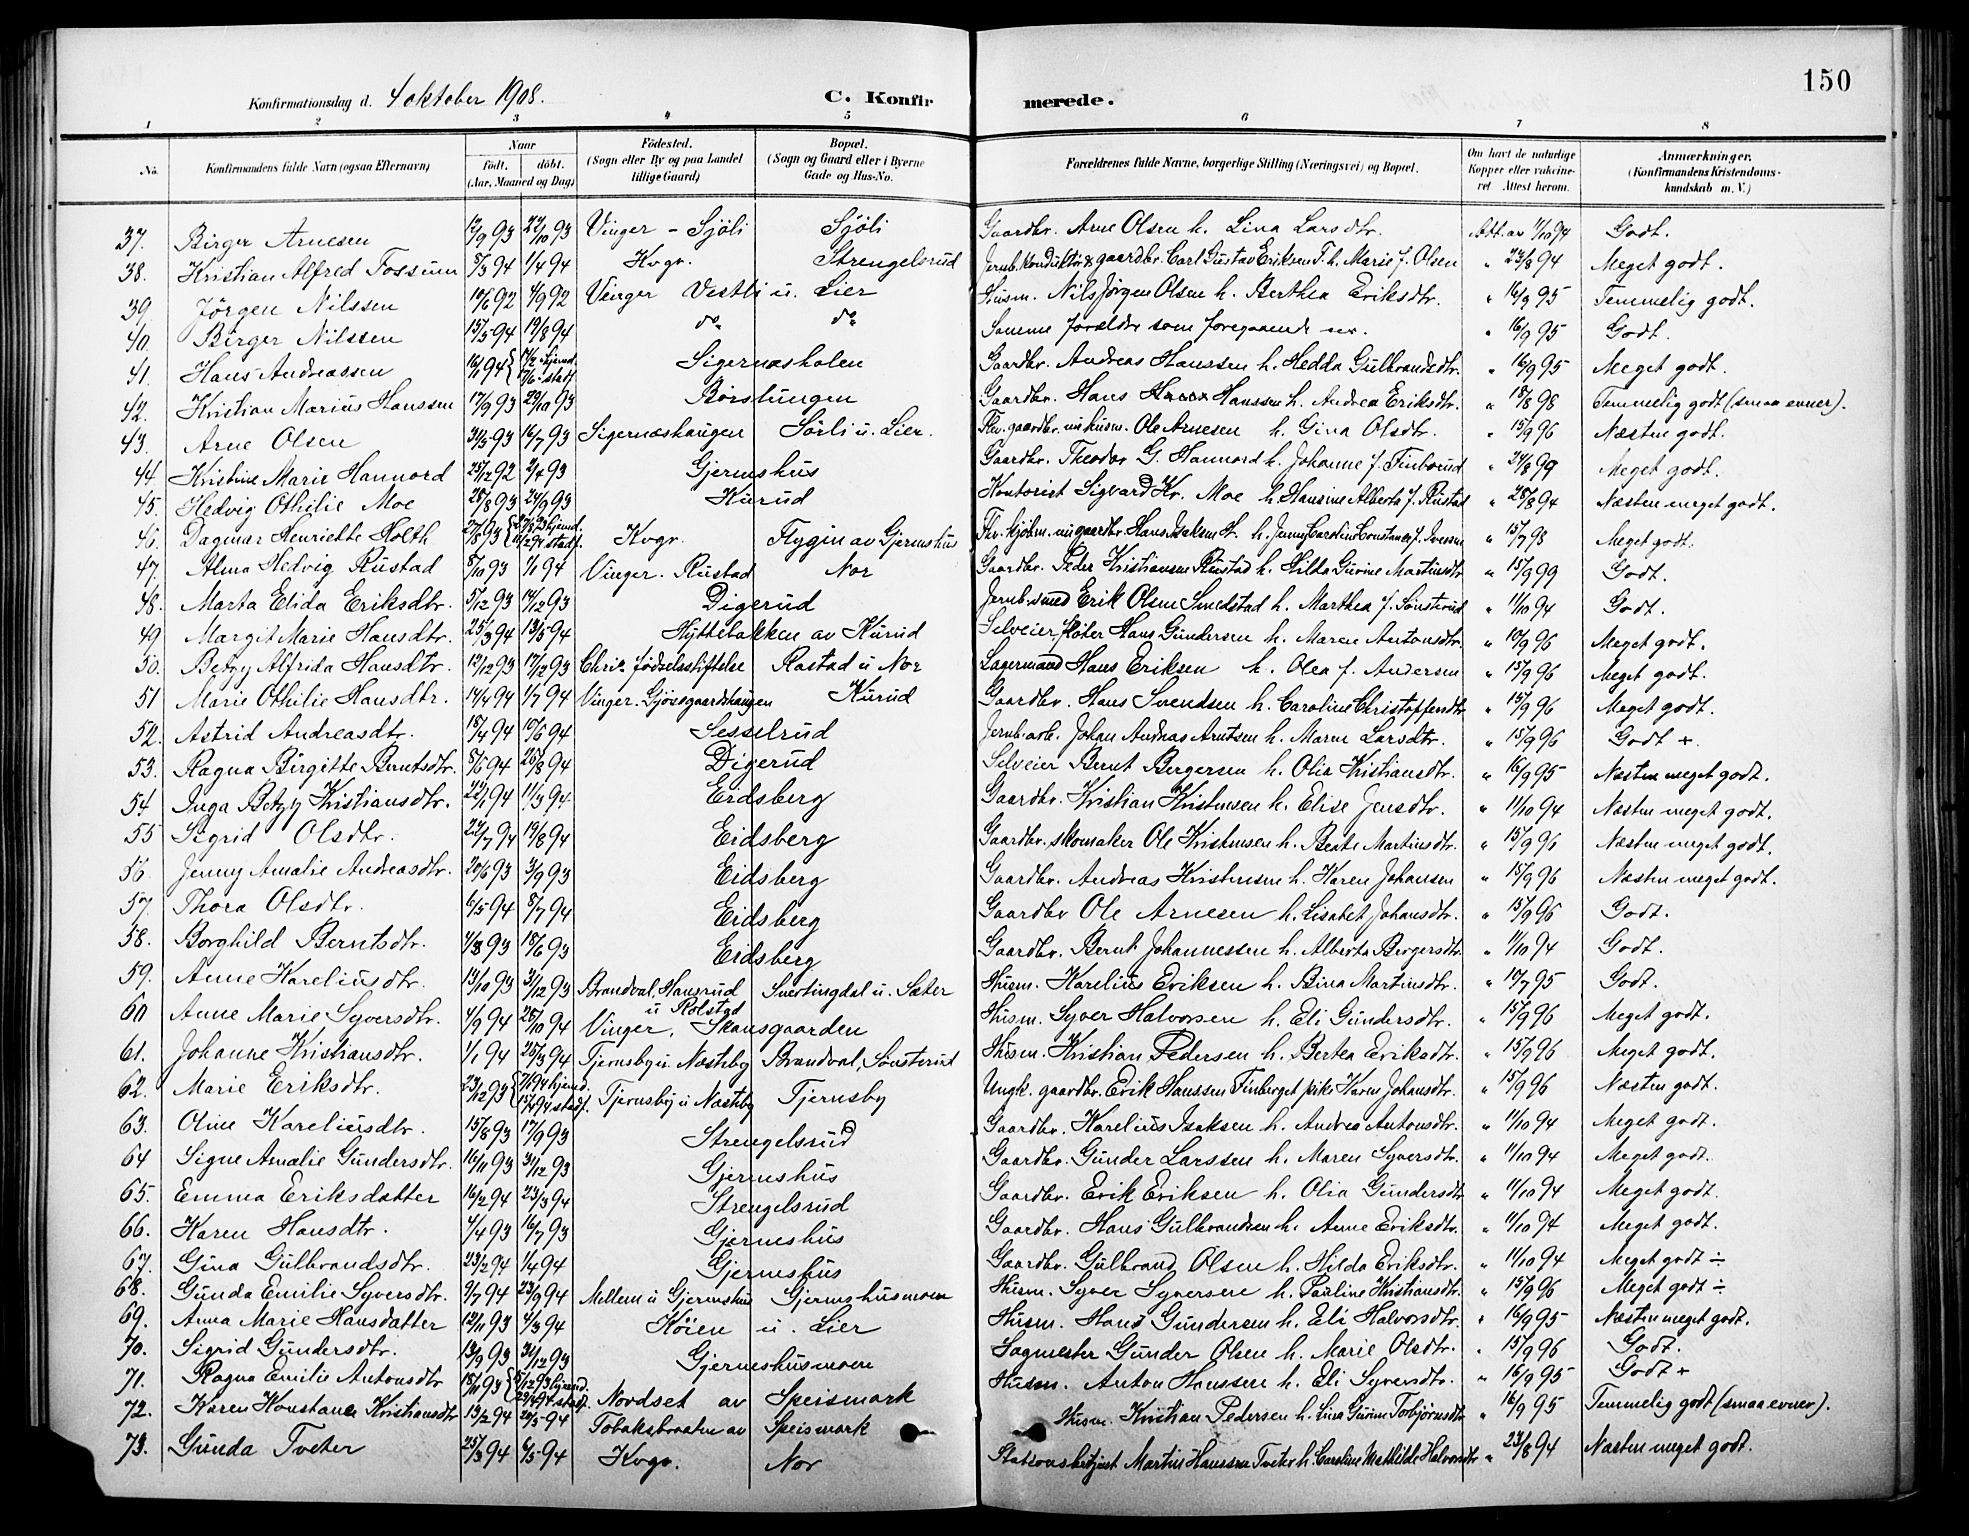 150
Konfirmationsdag d. 4 oktober 1908. C. Konfir merede.
1 2 3 4 5 6 7 8
No. Konfirmandens fulde Navn (ogsaa Efternavn) Naar født. døbt. (Aar, Maaned og Dag) Fødested. (Sogn eller By og paa Landet tillige Gaard) Bopæl. (Sogn og Gaard eller i Byerne Gade og Hus-No. Forældrenes fulde Navne, borgerlige Stilling (Næringsvei) og Bopæl. Om havt de naturlige Kopper eller vakcineret Attest herom. Anmærkninger. (Konfirmandens Kristendomskundskab m. V.)
37. Birger Arnesen 12/9 93 22/10 93 Vinger - Sjöli Sjöli Gaardbr. Arne Olsen h. Lina Larsdtr. Att. av 11/10 94 Godt.
38. Kristian Alfred Fossum 8/3 94 1/4 94 Kvgr. Strengelsrud Jernb. konduktör & gaardbr. Carl Gustav Eriksen F. h. Marie f. Olsen " 23/8 94 Meget godt.
39. Jörgen Nilssen 19/6 92 4/9 92 Vinger Vestli u. Lier Husm. Nils Jörgen Olsen h. Berthea Eriksdtr. " 16/9 95 Temmelig godt.
40. Birger Nilssen 15/5 94 19/8 94 do do Samme forældre som foregaaende nr. " 16/9 95 Godt.
41. Hans Andreassen 16/1 94 hjemd. stadf. Sigernesholen Gaardbr. Andreas Hanssen h. Hedda Gulbrandsdtr. " 16/9 95 Meget godt.
42. Kristian Marius Hanssen 17/9 93 29/10 93 Börslungen Gaardbr. Hans Hanssen h. Andrea Eriksdtr. " 18/8 98 Temmelig godt (smaa evner).
43. Arne Olsen 31/5 93 16/7 93 Sigernæshaugen Sörli u. Lier. Fhv. gaardbr. nu husm. Ole Arnesen h. Gina Olsdtr. " 15/9 96 Næsten godt.
44. Kristine Marie Hannord 25/12 92 2/4 93 Gjermshus Gaardbr. Theodor G. Hannord h. Johanne f. Finbærud " 24/8 99 Meget godt.
45. Hedvig Othilie Moe 28/8 93 24/9 93 Kurud Kontorist Sigvard Kr. Moe h. Hansine Alberta f. Rustad " 28/8 94 Næsten meget godt.
46. Dagmar Henriette Holth 27/8 93 hjemd. stadf. Kvgr. Flygin av Gjermshus Fhv. kjöbm. nu gaardbr. Hans Isaksen H. h. Jenny Caroline Constance f. Iversen " 15/7 98 Meget godt.
47. Alma Hedvig Rustad 8/10 93 1/1 94 Vinger. Rustad Nor Gaardbr. Peder Kristiansen Rustad h. Hilda Gurine Martinsdtr " 15/9 99 Godt.
48. Marta Elida Eriksdtr. 5/12 93 14/12 93 Digerud Jernb. smed Erik Olsen Smedstad h. Marthea f. Sönsterud " 11/10 94 Godt.
49. Margit Marie Hansdtr. 25/3 94 13/5 94 Hyttebakken av Kurud Selveier, fløter Hans Gundersen h. Maren Antonsdtr. " 10/9 96 Meget godt.
50. Betzy Alfrida Hansdtr. 12/12 93 17/12 93 Chria. födselsstiftelse Rastad u Nor Lagermand Hans Eriksen h. Olea f. Andersen " 15/9 96 Meget godt.
51 Marie Othilie Hansdtr. 14/4 94 1/7 94 Vinger. Gjösegaardshaugen Kurud Gaardbr. Hans Svendsen h. Caroline Christoffersdtr " 15/9 96 Meget godt.
52. Astrid Andreasdtr. 18/4 94 10/6 94 Sesselrud Jernb. arb. Johan Andreas Arntsen h. Maren Larsdtr. " 15/9 96 Godt +.
53. Ragna Birgitte Berntsdtr. 8/6 94 26/8 94 Digerud Selveier Bernt Bergersen h. Olia Kristiansdtr. " 16/9 95 Næsten meget godt.
54 Inga Betzy Kristiansdtr. 22/1 94 11/3 94 Eidsberg Gaardbr. Kristian Kristensen h. Elise Jensdtr. " 11/10 94 Næsten meget godt.
55 Sigrid Olsdtr. 22/7 94 19/8 94 Eidsberg Gaardbr. skomaker Ole Kristensen h. Beate Martinsdtr. " 15/9 96 Næsten meget godt.
56. Jenny Amalie Andreasdtr. 20/6 93 3/9 93 Eidsberg Gaardbr. Andreas Kristensen h. Karen Johansen " 15/9 96 Næsten meget godt.
57. Thora Olsdtr. 6/5 94 8/7 94 Eidsberg Gaardbr Ole Arnesen h. Lisabet Johansdtr. " 15/9 96 Godt.
58. Borghild Berntsdtr. 18/6 93 Eidsberg Gaardbr. Bernt Johannessen h. Alberta Bergersdtr. " 11/10 94 Godt.
59. Anne Kareliusdtr. 13/10 93 3/12 93 Brandval, Hansrud u Rolstad Svertingdal u. Sæter Husm. Karelius Eriksen h. Bina Martinsdtr. " 17/7 95 Godt.
60 Anne Marie Syversdtr. 4/9 94 28/10 94 Vinger, Skansgaarden Husm. Syver Halvorsen h. Eli Gundersdtr. " 15/9 96 Meget godt.
61. Johanne Kristiansdtr. 1/1 94 25/3 94 Tjernsby u. Næsteby Brandval, Sönsterud Husm. Kristian Pedersen h. Bertea Eriksdtr. " 15/9 96 Meget godt.
62. Marie Eriksdtr. 23/12 93 7/1 94 hjemd. 15/4 94 stadf. Tjernsby u Næsteby Tjernsby Ungk. gaardbr. Erik Hanssen Finberget pike Karen Johansdtr. " 15/9 96 Næsten godt.
63. Oline Kareliusdtr. 15/8 93 17/9 93 Strengelsrud Gaardbr. Karelius Isaksen h. Andrea Antonsdtr. " 11/10 94 Meget godt.
64 Signe Amalie Gundersdtr. 16/11 93 31/12 93 Gjermshus Gaardbr. Gunder Larssen h. Maren Syversdtr. " 11/10 94 Meget godt.
65. Emma Eriksdatter 16/2 94 23/3 94 Strengelsrud Gaardbr. Erik Eriksen h. Olia Gundersdtr " 11/10 94 Meget godt.
66. Karen Hansdtr. 4/4 93 16/7 93 Gjermshus Gaardbr. Hans Gulbrandsen h. Anne Eriksdtr. " 11/10 94 Meget godt.
67. Gina Gulbrandsdtr. 23/2 94 1/4 94 Gjermshus Gaardbr. Gulbrand Olsen h. Hilda Eriksdtr. " 11/10 94 Meget godt ÷
68. Gunda Emilie Syversdtr. 9/7 94 23/9 94 Mellem u Gjermshus Gjermshusmoen Husm. Syver Syversen h. Pauline Kristiansdtr. " 15/9 96 Meget godt ÷
69. Anna Marie Hansdatter 12/11 93 4/3 94 Höien u. Lier Husm. Hans Gundersen h. Eli Halvorsdtr. " 16/9 95 Næsten meget godt.
70. Sigrid Gundersdtr. 13/9 93 31/12 93 Gjermshusmoen Sagmester Gunder Olsen h. Marie Olsdtr. " 15/9 96 Godt.
71. Ragna Emilie Antonsdtr 18/11 93 hjemd. stadf. Nordset av Speismark Husm. Anton Hanssen h. Eli Syversdtr. " 16/9 95 Godt +
72. Karen Konstance Kristiansdtr 13/2 94 20/5 94 Tobaksbraaten av Speismark Husm. Kristian Pedersen h. Lina Gurine Torbjörnsdtr " 16/9 95 Temmelig godt (smaa evner).
73. Gunda Tveter 25/3 94 6/5 94 Kvgr. Nor Stationsbetjent Martin Hanssen Tveter h. Caroline Mathilde Halvorsdtr " 23/8 94 Næsten meget godt.